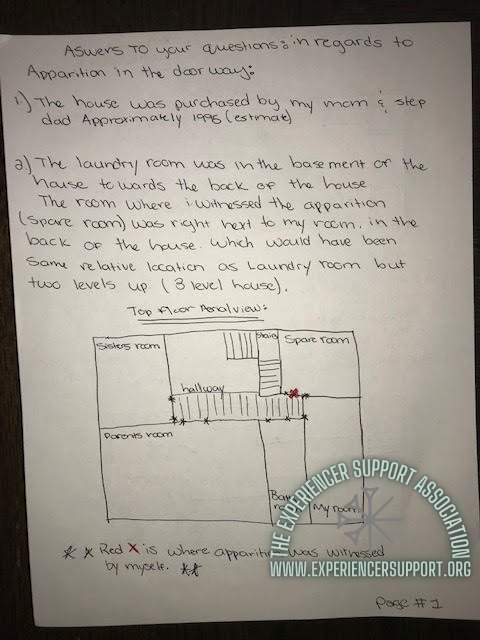 Aswers To your questions: in regards to
Apparition in the doorway:
1.) The house was purchased by my mom & step
dad Approximately 1995 (estimate)
2.) The laundry room was in the basement of the
house towards the back of the house
The room where i witnessed the apparition
(spare room) was right next to my room, in the
back of the house. Which would have been
same relative location as Laundry room but
two levels up (3 level house).
Top Floor Aerial view:
Sisters room
Stairs
Spare room
hallway
Parents room
room
My room
Red X is where apparition was witnessed
by myself.
THE EXPERIENCER SUPPORT ASSOCIATION
WWW.EXPERIENCERSUPPORT.ORG
Page #1